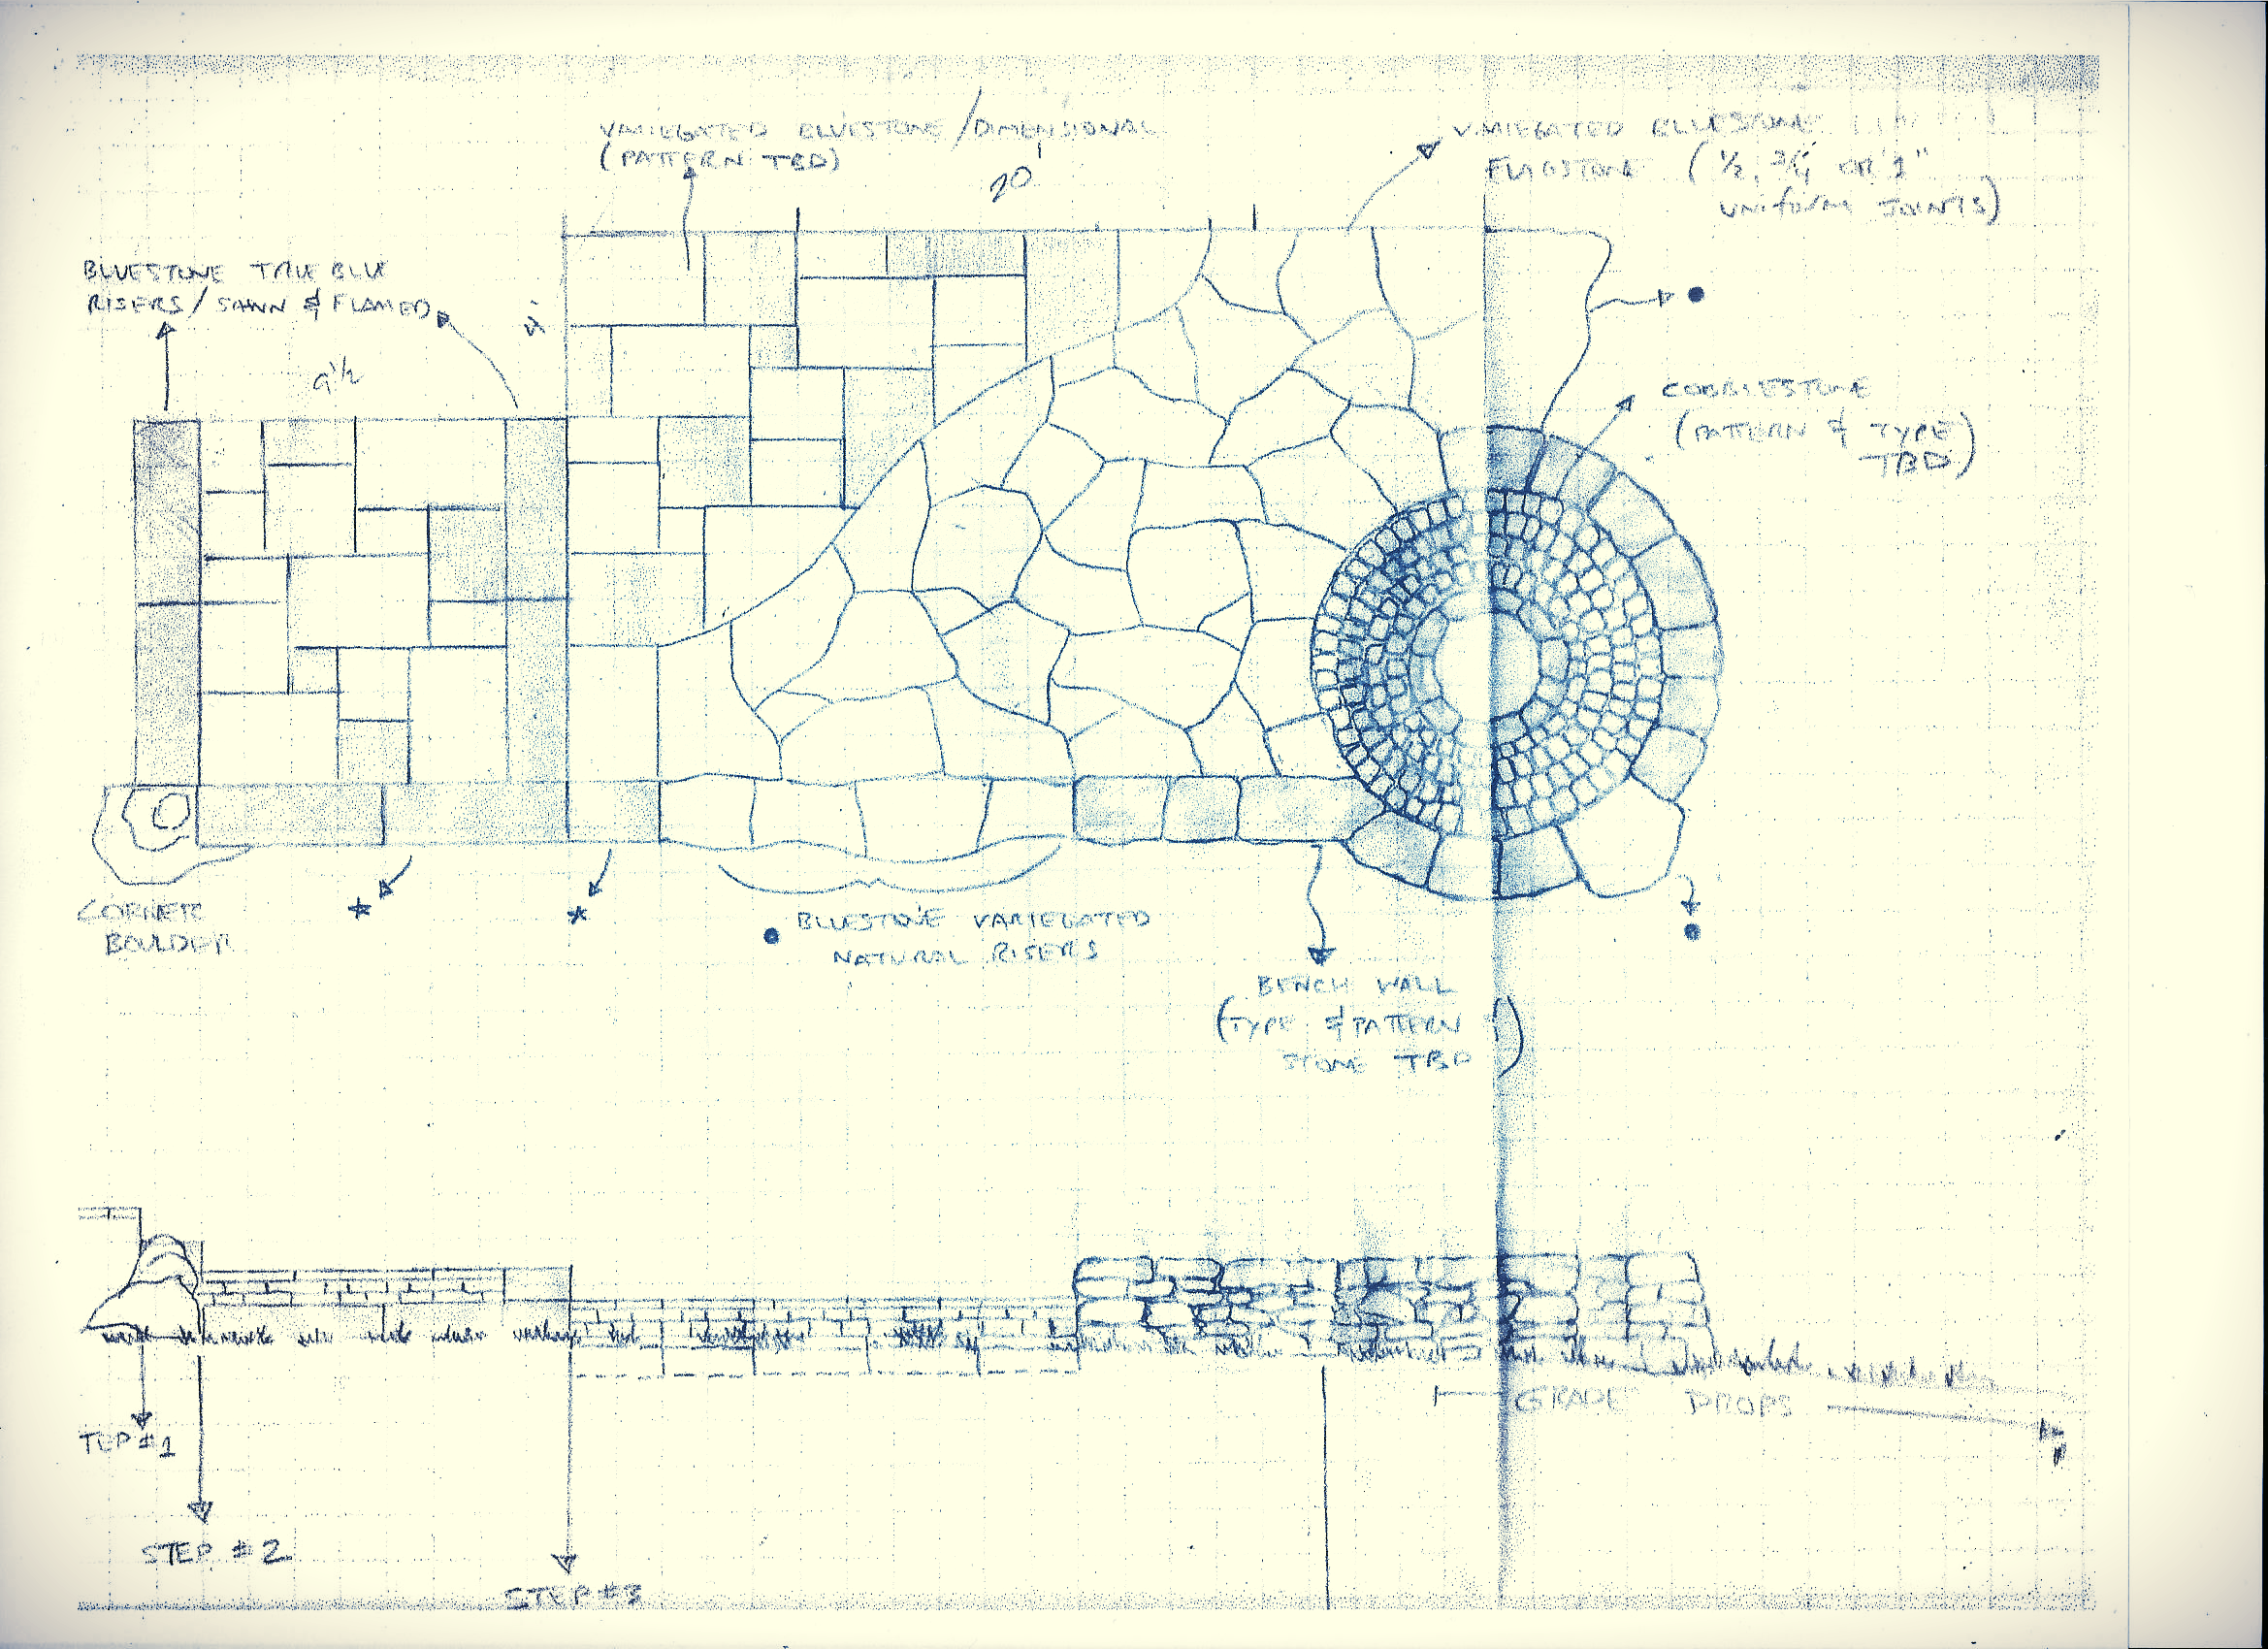 VARIEGATED BLUESTONE / DIMENSIONAL
(PATTERN TBD)
20'
VARIEGATED BLUESTONE
FLAGSTONE (1/2, 3/4 OR 1"
UNIFORM JOINTS)
BLUESTONE TRUE BLUE
RISERS / SAWN & FLAMED
9 1/2
COBBLESTONE
(PATTERN & TYPE
TBD)
CORNER
BOULDER
• BLUESTONE VARIEGATED
NATURAL RISERS
BENCH WALL
(TYPE & PATTERN
STONE TBD)
GRADE DROPS
TEP #1
STEP #2
STEP #3